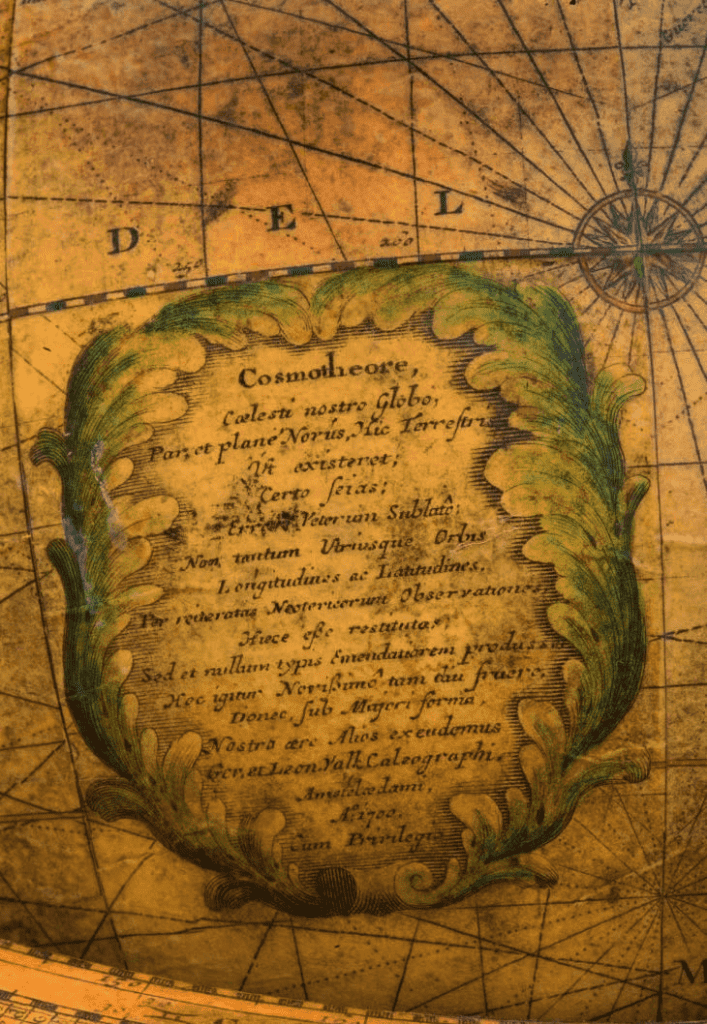 D E L
250
200
Cosmotheore,
Cœlesti nostro Globo,
Par, et planè Novus, Hic Terrestris
Ut existeret;
Certo scias;
Veterum Sublatô;
Non tantum Utriusque Orbis
Longitudines ac Latitudines,
Per reiteratas Neotericorum Observationes,
Hicce eſſe restitutas;
Sed et nullum typis Emendatiorem prodiisse
Hoc igitur Noviſſimô tam diu fruere,
Donec, sub Majori forma,
Nostro ære Alios excudemus
Ger, et Leon. Valk Calcographi,
Amstelædami,
Aº 1700.
Cum Privilegio
M